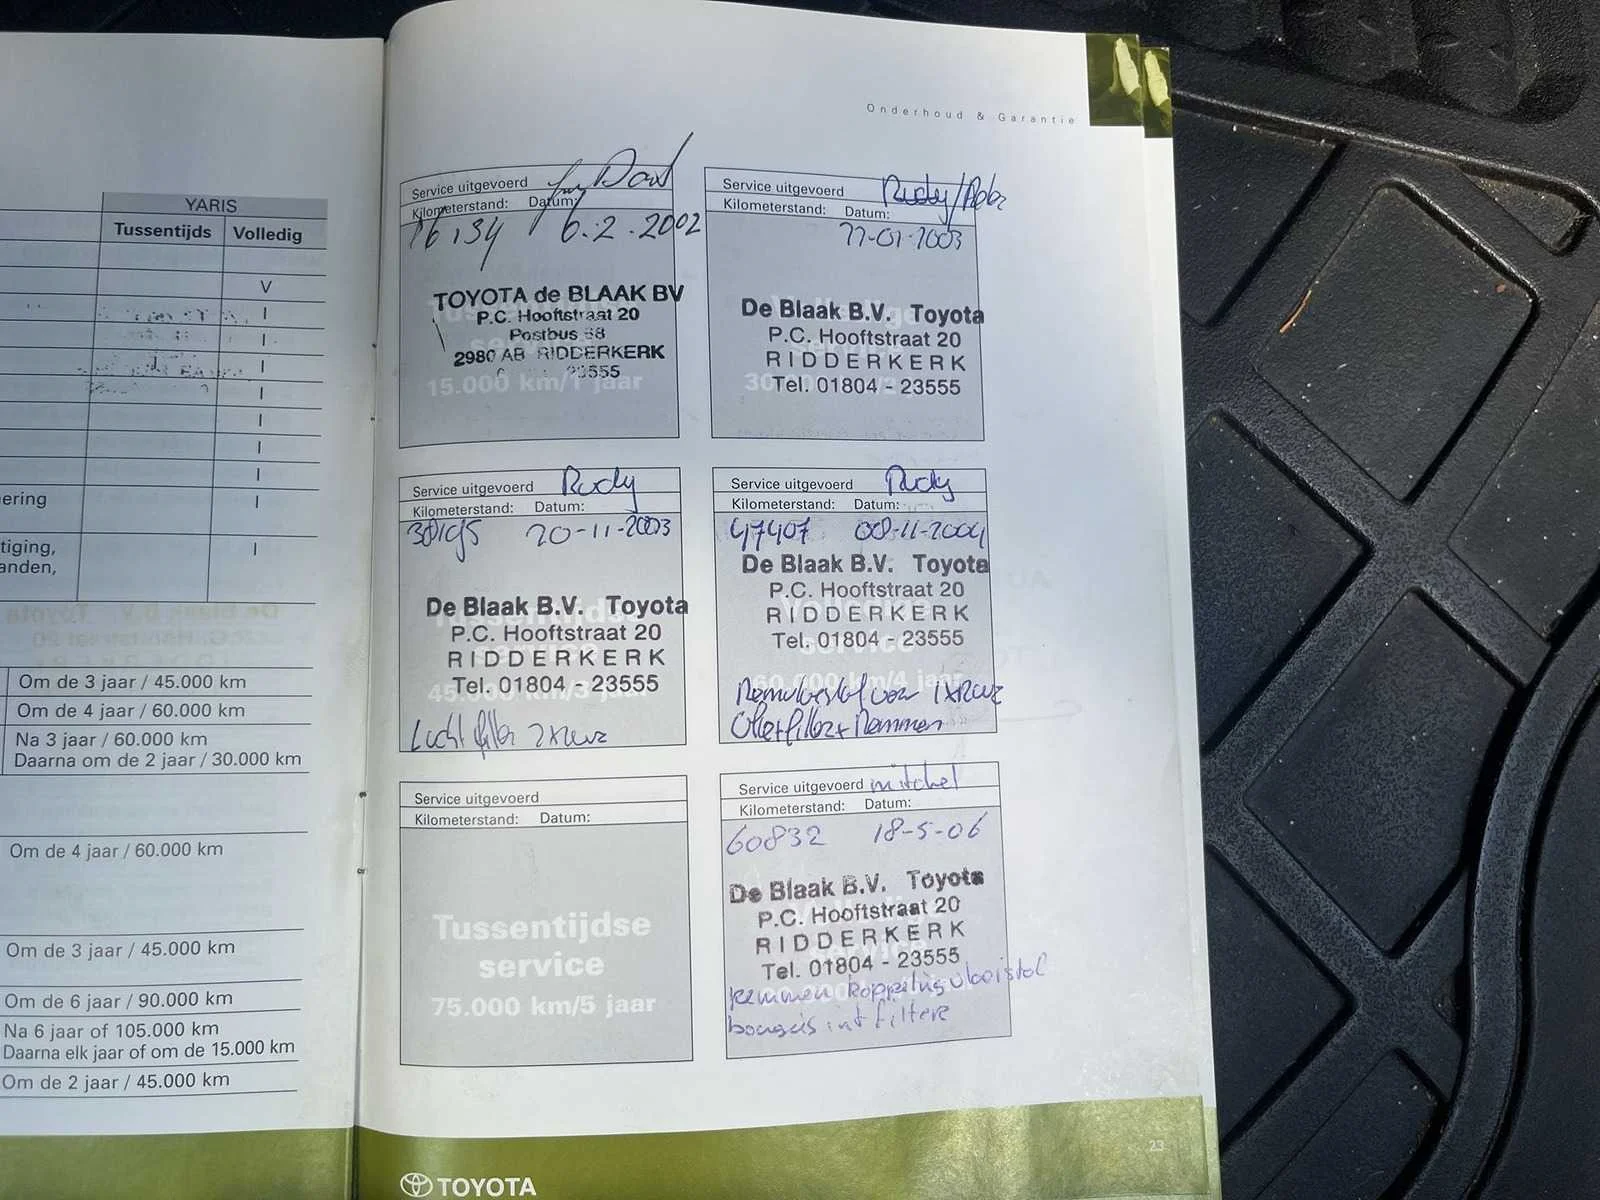 Onderhoud & Garantie
YARIS
Tussentijds Volledig
V
I
I
I
I
I
I
I
ering
I
tiging,
anden,
I
Om de 3 jaar / 45.000 km
Om de 4 jaar / 60.000 km
Na 3 jaar / 60.000 km
Daarna om de 2 jaar / 30.000 km
Om de 4 jaar / 60.000 km
Om de 3 jaar / 45.000 km
Om de 6 jaar / 90.000 km
Na 6 jaar of 105.000 km
Daarna elk jaar of om de 15.000 km
Om de 2 jaar / 45.000 km
Service uitgevoerd
Kilometerstand: Datum:
16134 6.2.2002
TOYOTA de BLAAK BV
P.C. Hooftstraat 20
Postbus 68
2980 AB RIDDERKERK
23555
15.000 km/1 jaar
Service uitgevoerd Rudy/
Kilometerstand: Datum:
De Blaak B.V. Toyota
P.C. Hooftstraat 20
RIDDERKERK
Tel. 01804 - 23555
Service uitgevoerd Rudy
Kilometerstand: Datum:
20-11-2003
De Blaak B.V. Toyota
Tussentijdse
P.C. Hooftstraat 20
service
RIDDERKERK
Tel. 01804 - 23555
45.000 km/3 jaar
Lucht filter
Service uitgevoerd Rudy
Kilometerstand: Datum:
47407 08-11-2004
De Blaak B.V. Toyota
P.C. Hooftstraat 20
Volledige
RIDDERKERK
service
Tel. 01804 - 23555
60.000 km/4 jaar
Remvloeistof
Oliefilter + Remmen
Service uitgevoerd
Kilometerstand: Datum:
Tussentijdse
service
75.000 km/5 jaar
Service uitgevoerd mitchel
Kilometerstand: Datum:
60832 18-5-06
De Blaak B.V. Toyota
P.C. Hooftstraat 20
RIDDERKERK
Tel. 01804 - 23555
remmen koppelingsvloeistof
bougies int filters
23
TOYOTA